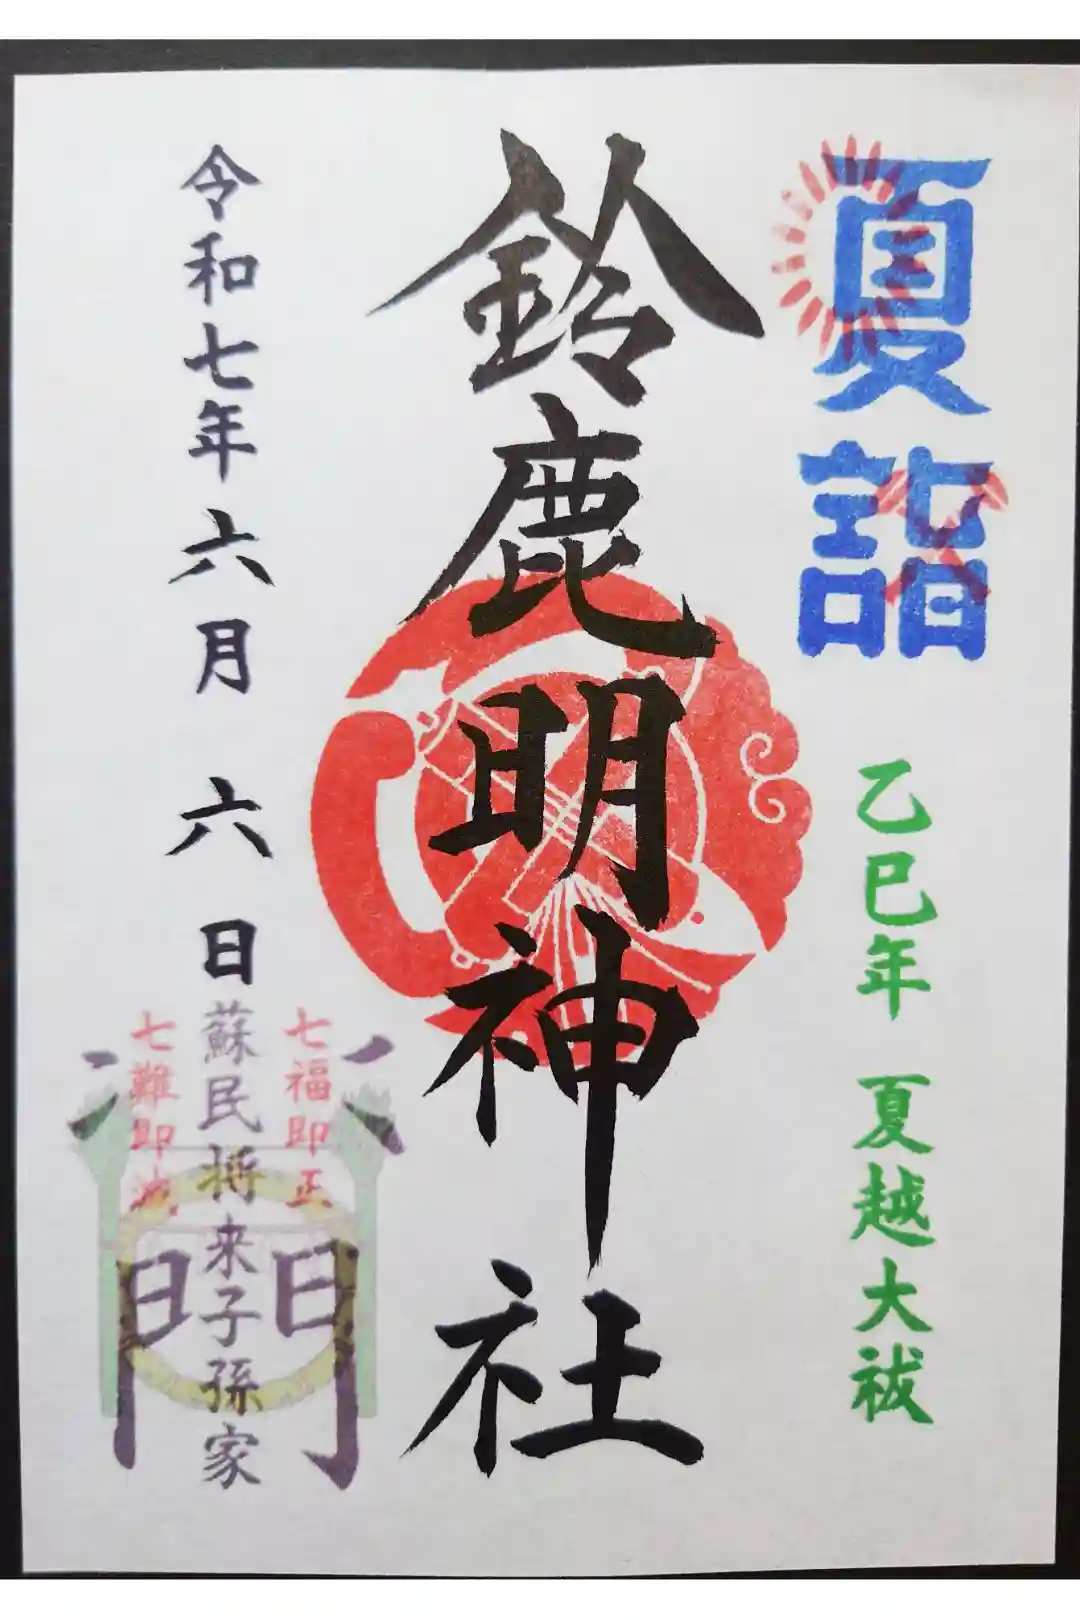 夏詣
乙巳年 夏越大祓
鈴鹿明神社
令和七年六月 六日
七福即正
蘇民将来子孫家
七難即滅
門